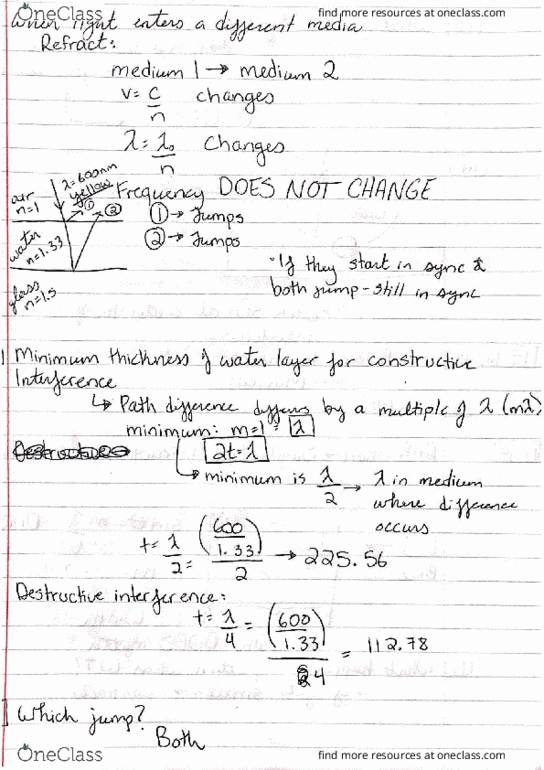 OneClass
find more resources at oneclass.com
When light enters a different media
Refract:
medium 1 → medium 2
v = c/n changes
λ = λ₀/n changes
Frequency DOES NOT CHANGE
air n=1
λ=600nm yellow
① ②
① → Jumps
② → Jumps
water n=1.33
glass n=1.5
"If they start in sync &
both jump - still in sync
Minimum thickness of water layer for constructive
Interference
↳ Path difference differs by a multiple of λ (mλ)
minimum: m=1 = λ
2t=λ
→ minimum is λ/2 → λ in medium
where difference
occurs
t = λ/2 = (600/1.33)/2 → 225.56
Destructive interference:
t = λ/4 = (600/1.33)/4 = 112.78
Which jump?
Both
OneClass
find more resources at oneclass.com